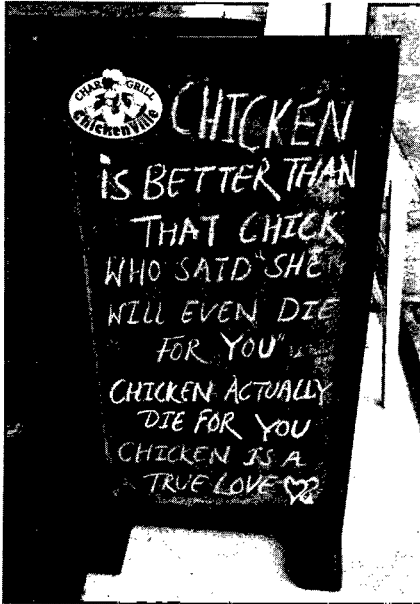 CHAR GRILL
ChickenVille
CHICKEN
is BETTER THAN
THAT CHICK
WHO SAID "SHE
WILL EVEN DIE
FOR YOU"
CHICKEN ACTUALLY
DIE FOR YOU
CHICKEN IS A
TRUE LOVE